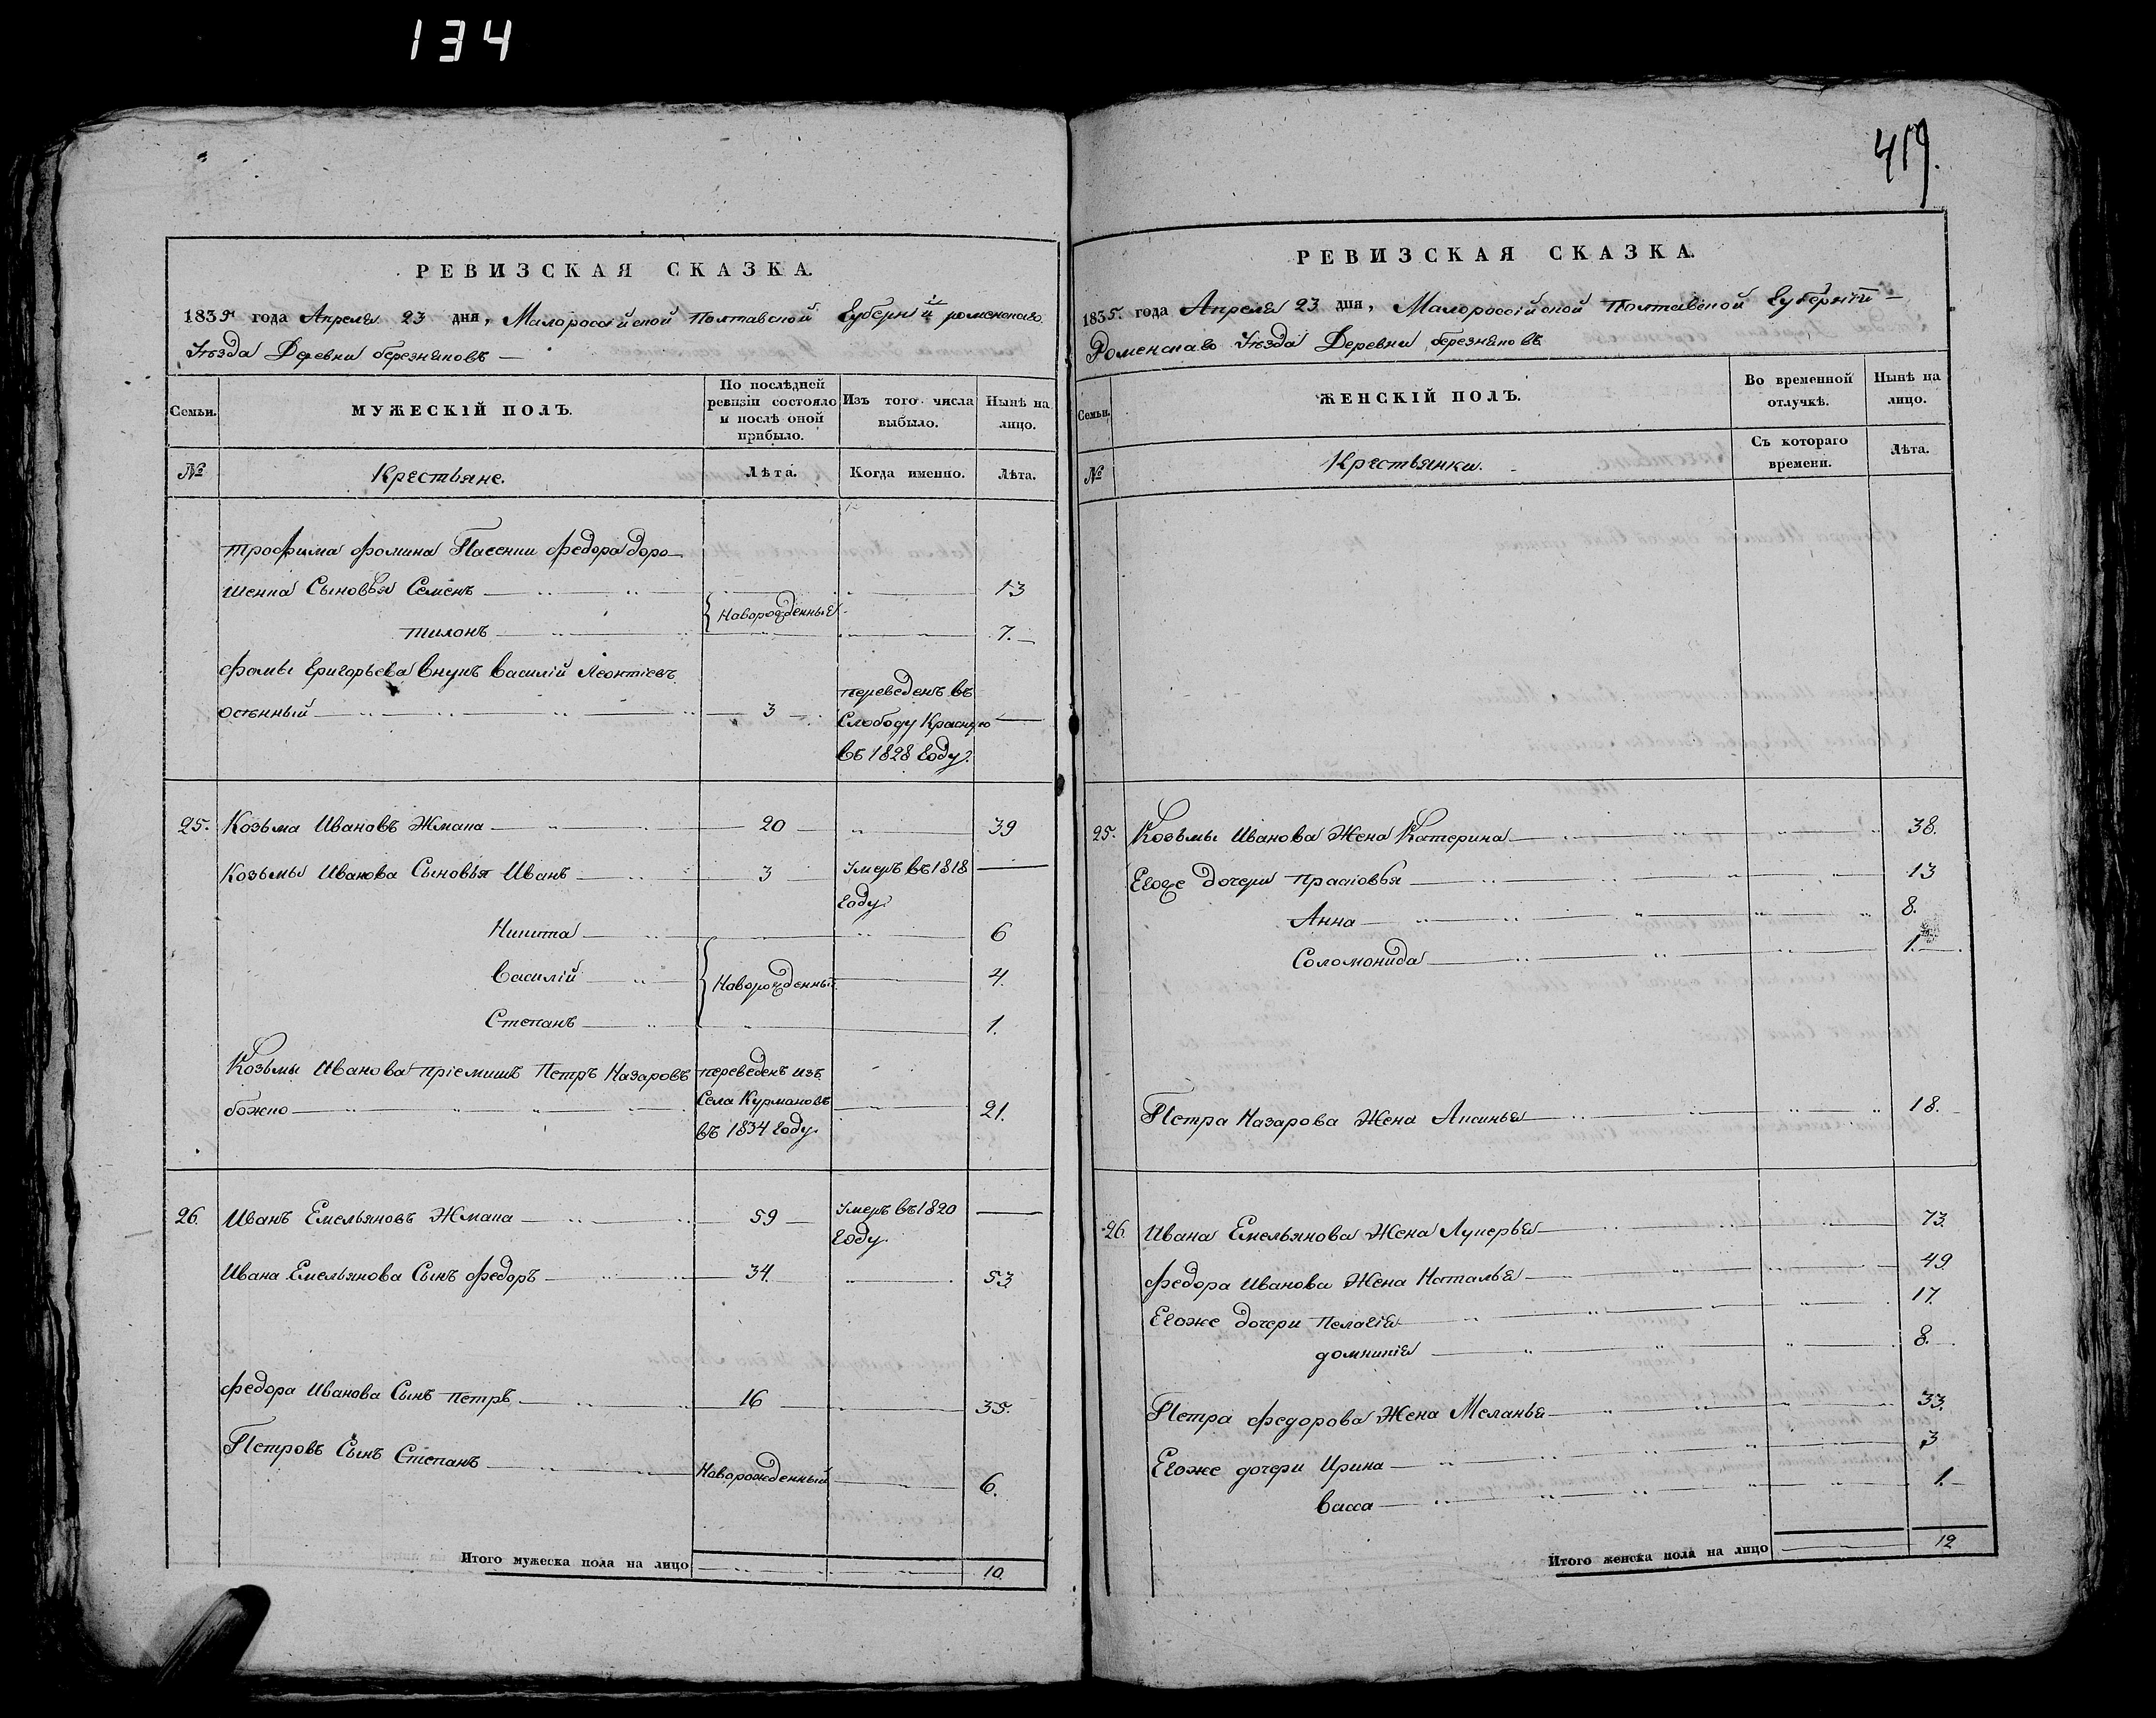 134
419.
РЕВИЗСКАЯ СКАЗКА.
1835 года Апреля 23 дня, Малороссійской Полтавской Губерніи роменскаго
Уѣзда Деревни березняковъ
Семьи. МУЖЕСКІЙ ПОЛЪ. По послѣдней ревизіи состояло и послѣ оной прибыло. Изъ того числа выбыло. Нынѣ на лицо.
№ Крестьяне. Лѣта. Когда именно. Лѣта.
трофима фомина Пасенки федора доро-
шенка Сыновья Семенъ 13
Новорожденные
тихонъ 7.
фомы Григорьева внукъ василій леонтіевъ
3 переведенъ въ
Слободу Красную
въ 1828 году.
25. Козьма Ивановъ Жмака 20 39
Козьмы Иванова Сыновья Иванъ 3 Умеръ въ 1818
году.
Никита 6
василій Новорожденный 4.
Степанъ 1.
Козьмы Иванова пріемышъ Петръ Назаровъ переведенъ изъ
божко Села Курмановъ 21.
въ 1834 году.
26. Иванъ Емельяновъ Жмака 59 Умеръ въ 1820
году.
Ивана Емельянова Сынъ федоръ 34. 53
федора Иванова Сынъ петръ 16 35.
Петровъ Сынъ Степанъ Новорожденный 6.
Итого мужеска пола на лицо 10.
РЕВИЗСКАЯ СКАЗКА.
1835. года Апреля 23 дня, Малороссійской Полтавской Губерніи
Роменскаго Уѣзда Деревни березняковъ
Семьи. ЖЕНСКІЙ ПОЛЪ. Во временной отлучкѣ. Нынѣ на лицо.
№ Крестьянки. Съ котораго времени. Лѣта.
25. Козьмы Иванова Жена Катерина 38.
Егоже дочери прасковья 13
Анна 8.
Соломонида 1.
Петра Назарова Жена Аксинья 18.
26. Ивана Емельянова Жена Лукерья 73.
федора Иванова Жена Наталья 49.
Егоже дочери пелагія 17.
домникія 8.
Петра федорова Жена Меланья 33.
Егоже дочери Ирина 3
васса 1.
Итого женска пола на лицо 12